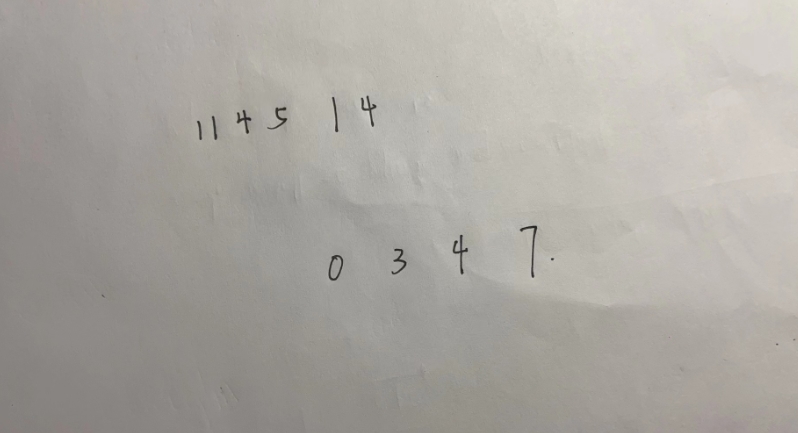 1145 14
0 3 4 7.